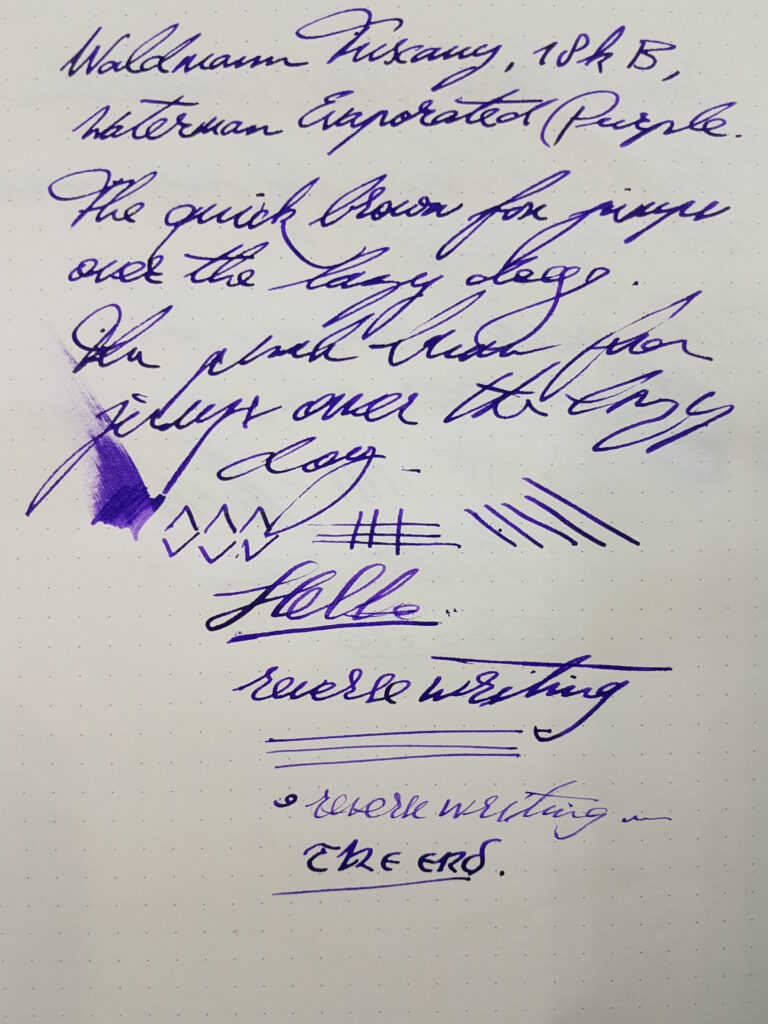 Waldmann Tuscany, 18k B,
Waterman Evaporated (Purple.
The quick brown fox jumps
over the lazy dogs.
The
jumps over the lazy
dog -
Hello
reverse writing
reverse writing
THE END.